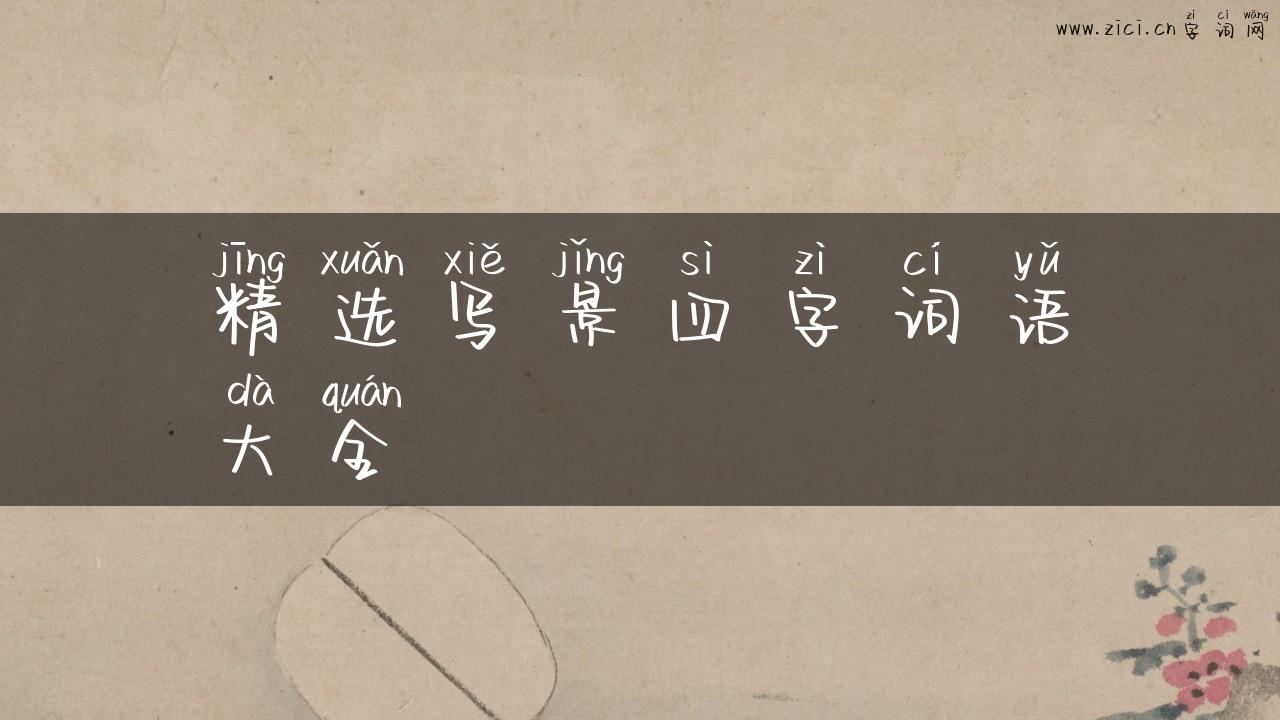 zì cí wǎng
www.zici.cn字词网
jīng xuǎn xiě jǐng sì zì cí yǔ
精选写景四字词语
dà quán
大全